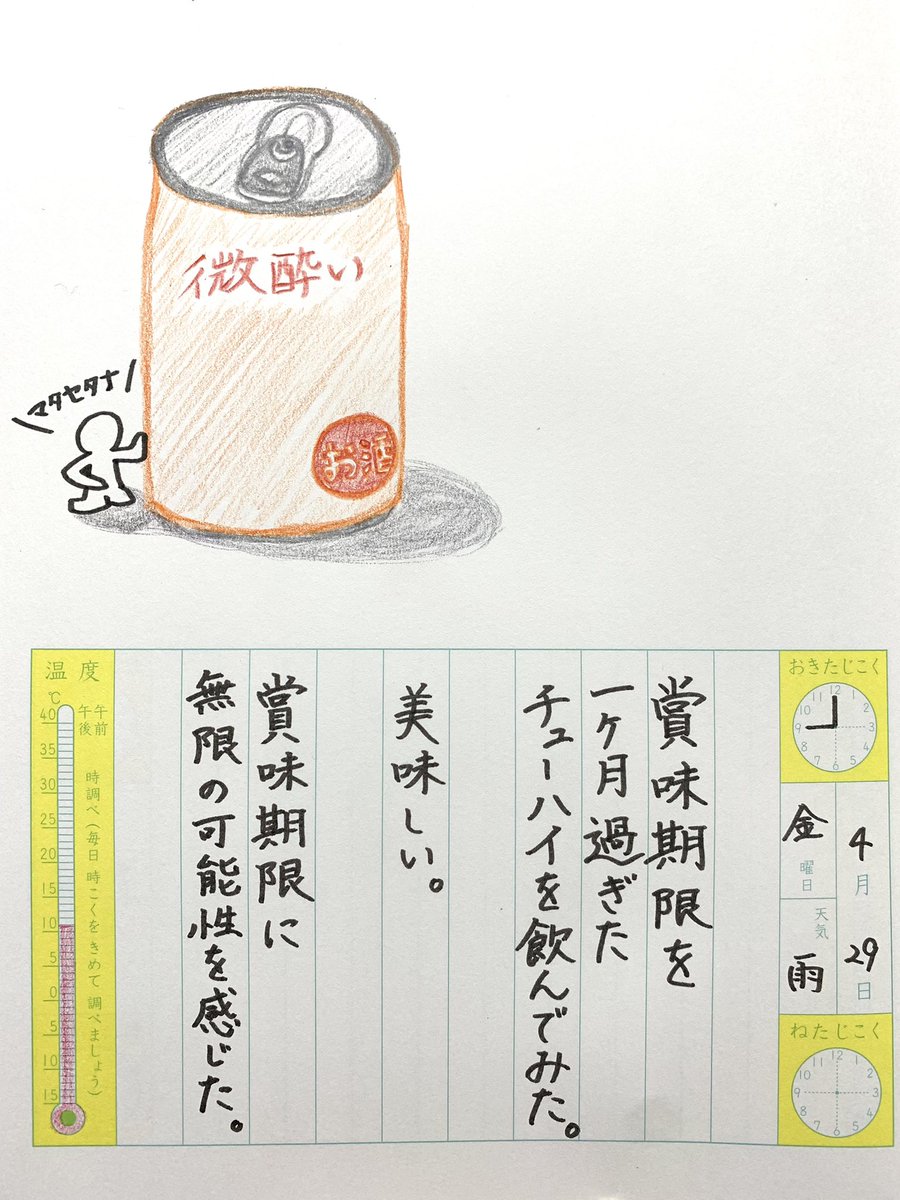 微酔い
お酒
マタセタナ
おきたじこく
12 1 2 3 4 5 6 7 8 9 10 11
4月29日
金曜日
天気
雨
ねたじこく
12 1 2 3 4 5 6 7 8 9 10 11
賞味期限を
一ヶ月過ぎた
チューハイを飲んでみた。
美味しい。
賞味期限に
無限の可能性を感じた。
温度
℃
40
35
30
25
20
15
10
5
0
5
10
15
午前
午後
時調べ(毎日 時こくをきめて 調べましょう)